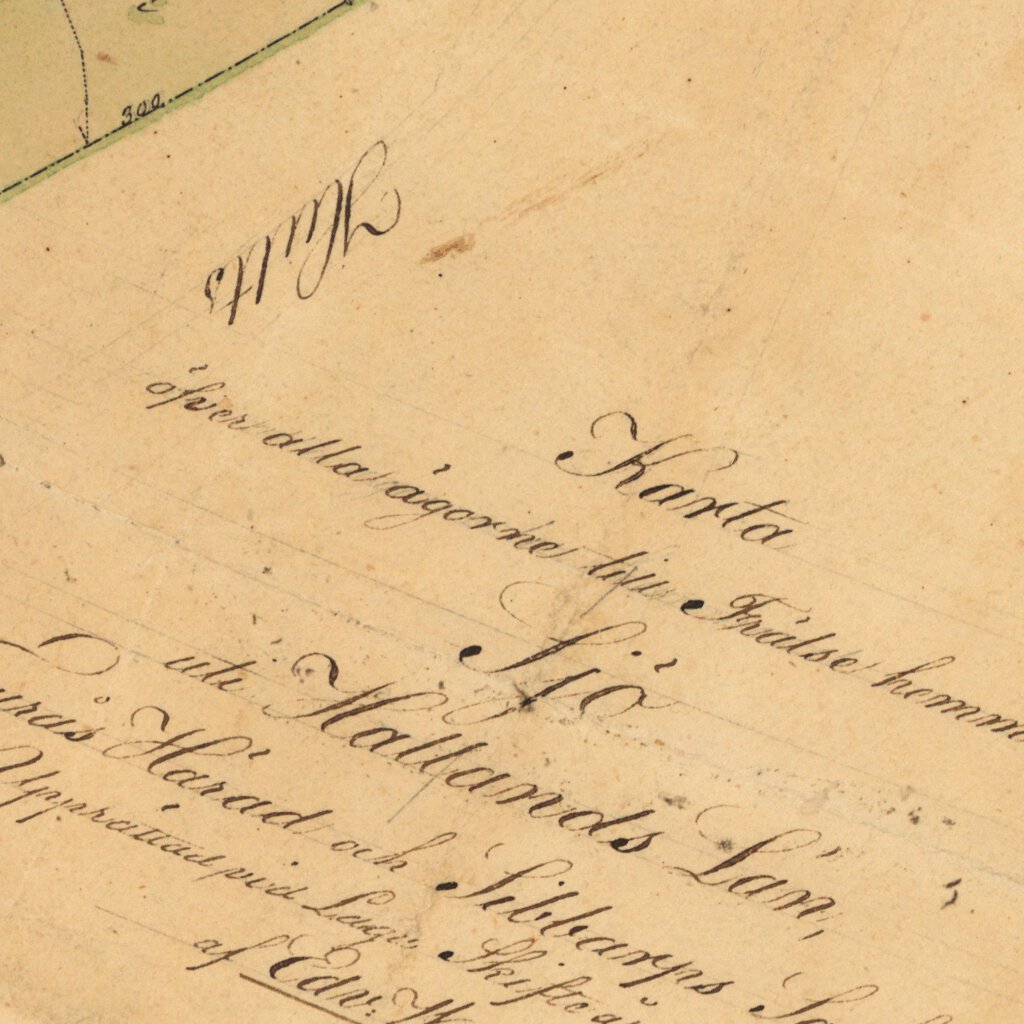 300
Hults
Karta
öfver alla ägorne till Frälse hemm
Sjö
uti Hallands Län,
Härad och Sibbarps
Upprättad vid Laga Skifte
af Edv: